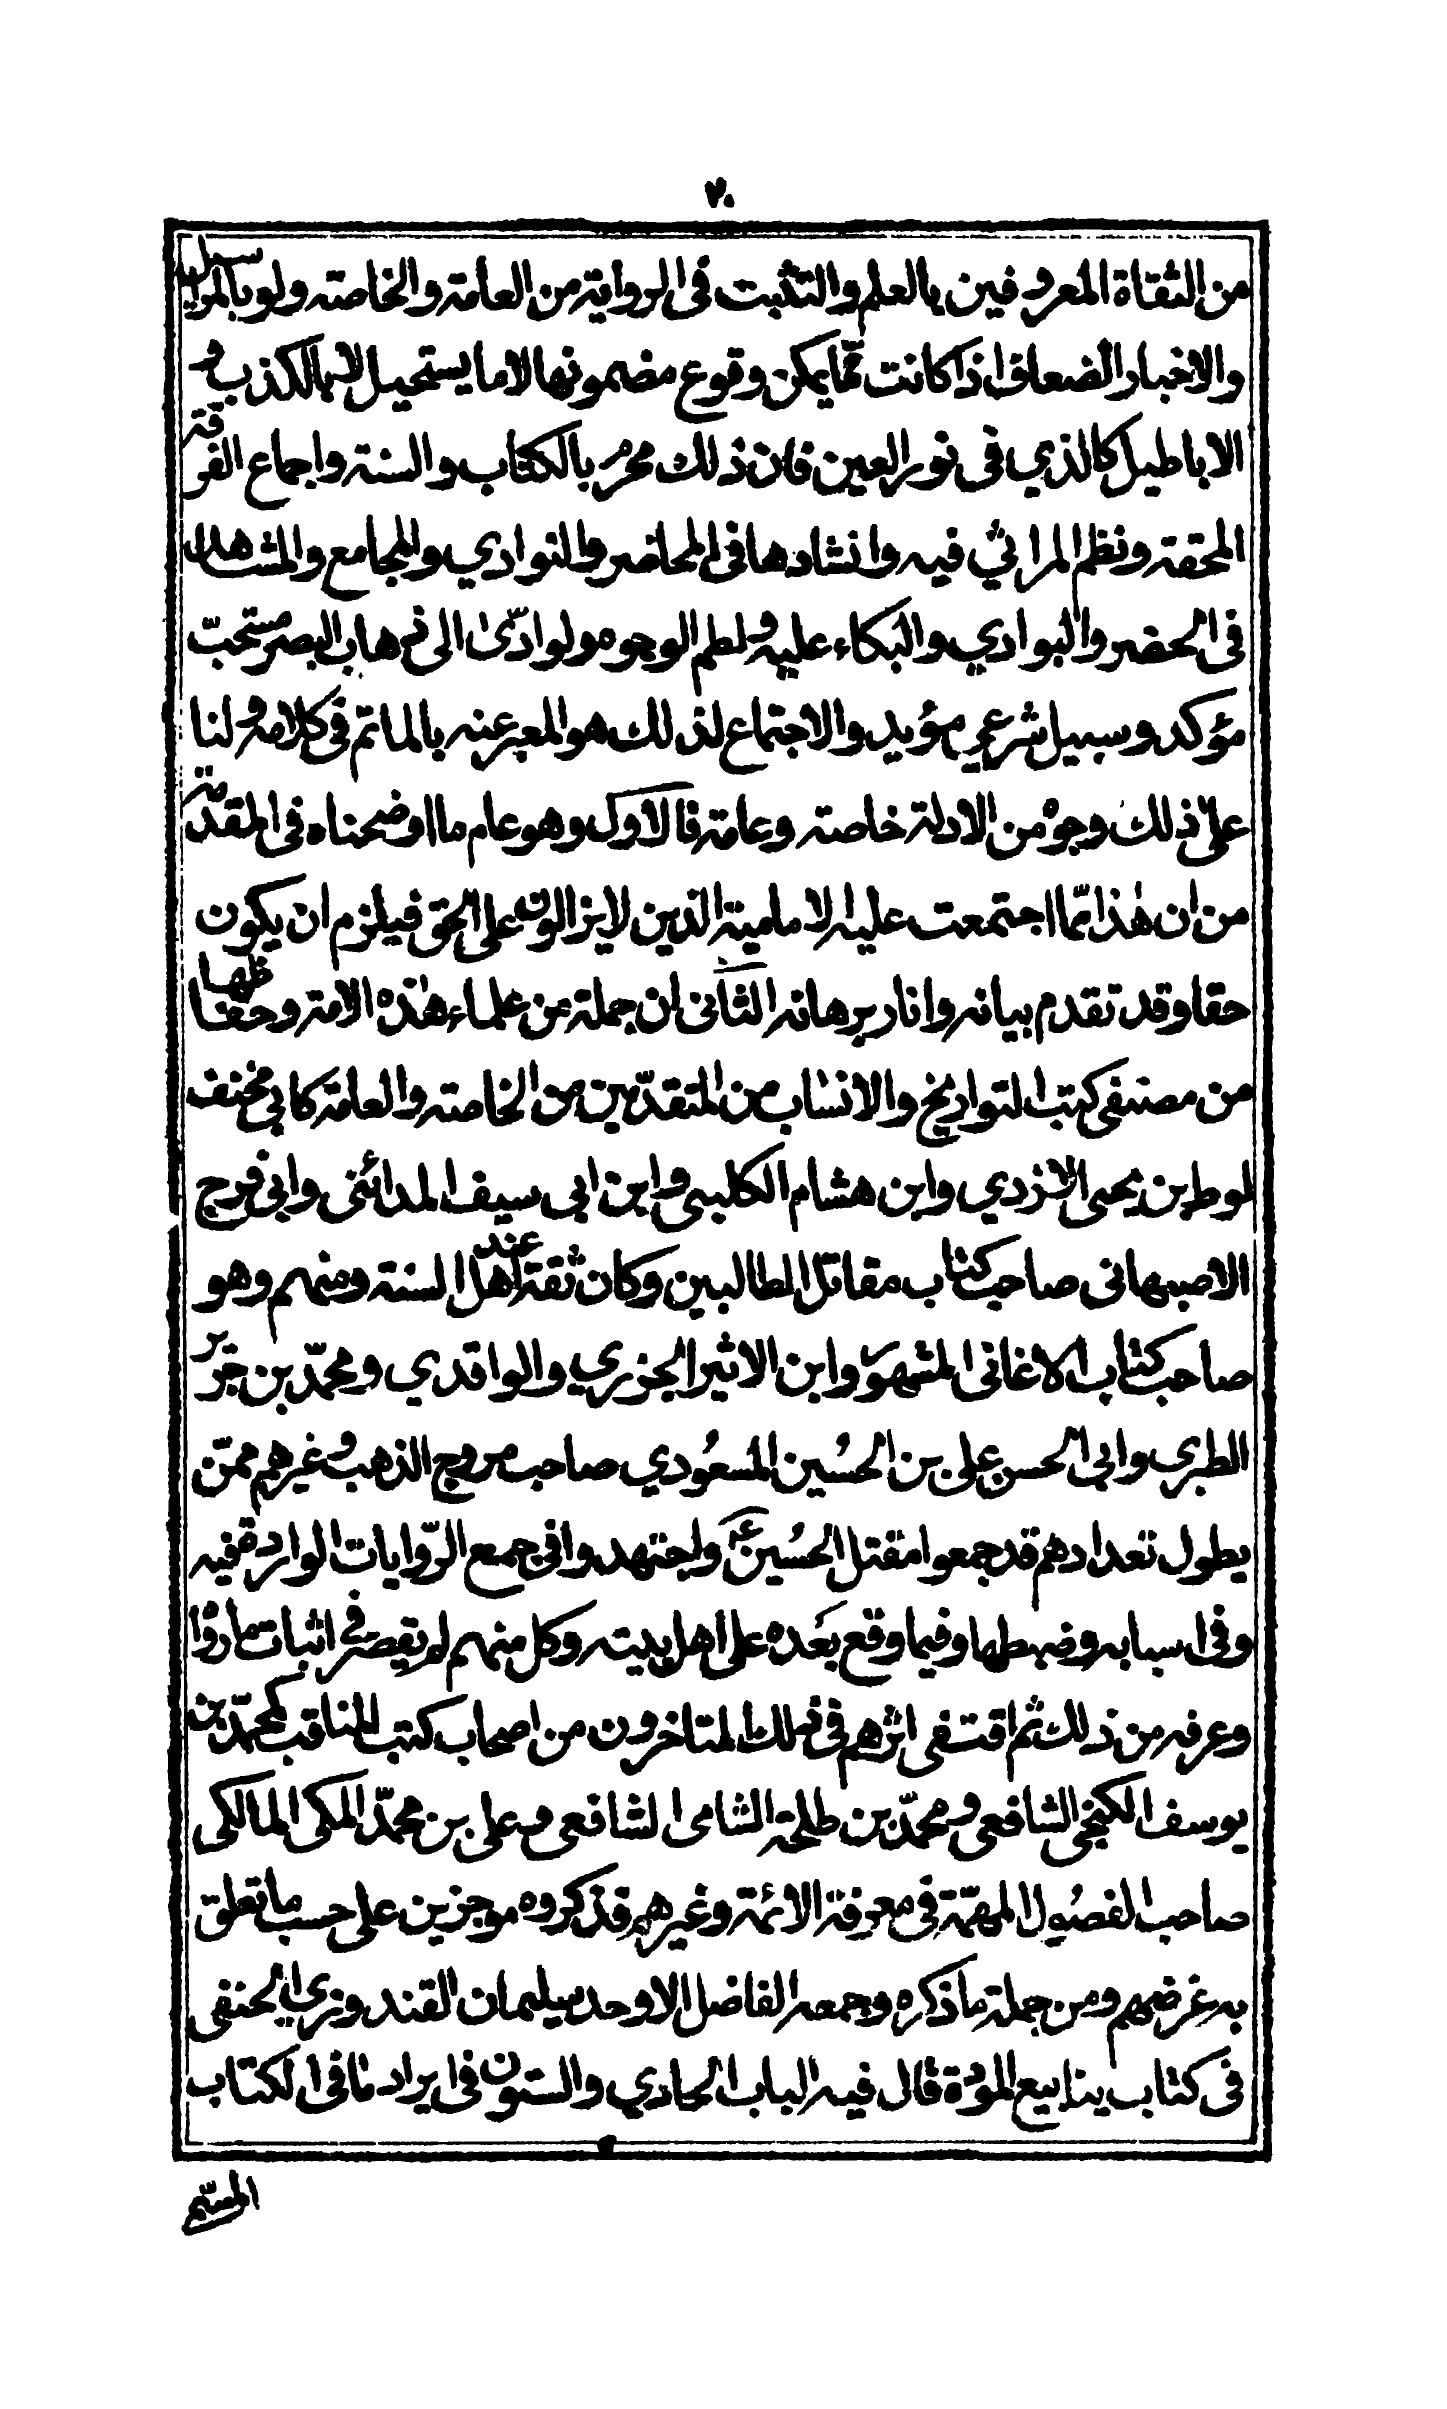 ٧٠
من الثقاة المعروفين بالعلم والتثبت فى الرواية من العامة والخاصة ولو بالمراسيل
والاخبار الضعاف اذا كانت ممّا يمكن وقوع مضمونها لا ما يستحيل لاسيما الكذب و
الاباطيل كالذي فى نور العين فان ذلك محرم بالكتاب والسنة واجماع الفرقة
المحقة ونظم المراثي فيه وانشادها فى المحاضر والنوادي والمجامع والمشاهد
فى الحضر والبوادي والبكاء عليه ولطم الوجوه ولو ادّى الى ذهاب البصر مستحبّ
مؤكد وسبيل شرعي مؤيد والاجتماع لذلك هو المعبر عنه بالماتم فى كلامه ولنا
على ذلك وجوه من الادلة خاصة وعامة فالاول وهو عام ما اوضحناه فى المقدّمة
من ان هذا ممّا اجتمعت عليه الامامية الذين لا يزالون على الحق فيلزم ان يكون
حقا وقد تقدم بيانه وانار برهانه الثانى ان جملة من علماء هذه الامة وحفاظها
من مصنفى كتب التواريخ والانساب من المتقدّمين من الخاصة والعامة كابي مخنف
لوط بن يحيى الازدي وابن هشام الكلبى وابن ابي سيف المدائنى وابي فرج
الاصبهانى صاحب كتاب مقاتل الطالبين وكان ثقة عند اهل السنة ومنهم وهو
صاحب كتاب الاغانى المشهور وابن الاثير الجزري والواقدي ومحمّد بن جرير
الطبري وابي الحسن علي بن الحسين المسعودي صاحب مروج الذهب وغيرهم ممّن
يطول تعدادهم قد جمعوا مقتل الحسين ع واجتهدوا فى جمع الرّوايات الواردة فيه
وفى اسبابه وضبطها وفيما وقع بعده على اهل بيته وكل منهم لم يقصر فى اثبات ما رووا
وعرفه من ذلك ثم اقتفى اثرهم فى ذلك المتاخرون من اصحاب كتب المناقب كمحمّد بن
يوسف الكنجي الشافعى ومحمّد بن طلحة الشامى الشافعى وعلى بن محمّد المكى المالكى
صاحب الفصول المهمّة فى معرفة الائمة وغيرهم فذكروه موجزين على حسب ما تعلق
به غرضهم ومن جملة ما ذكره وجمعه الفاضل الاوحد سليمان القندوزي الحنفى
فى كتاب ينابيع المودة قال فيه الباب الحادي والستون فى ايراد ما فى الكتاب
المسمّى